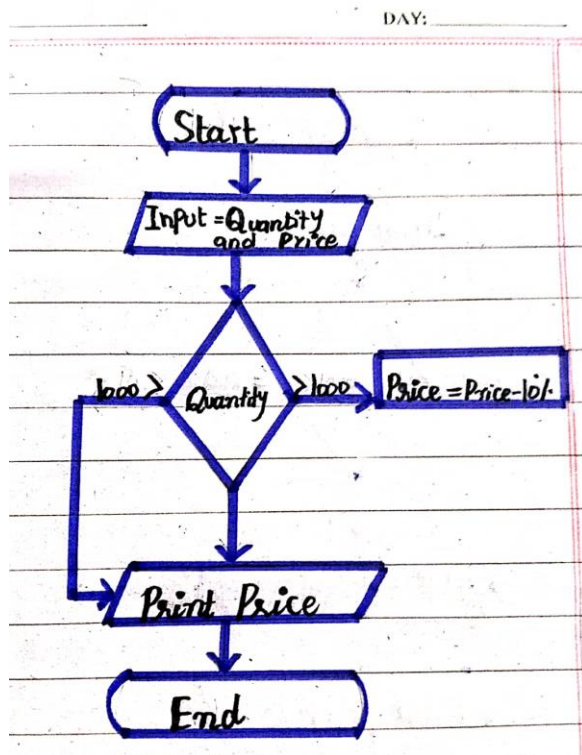 DAY:
Start
Input = Quantity
and Price
1000 >
Quantity
>1000
Price = Price-10%
Print Price
End